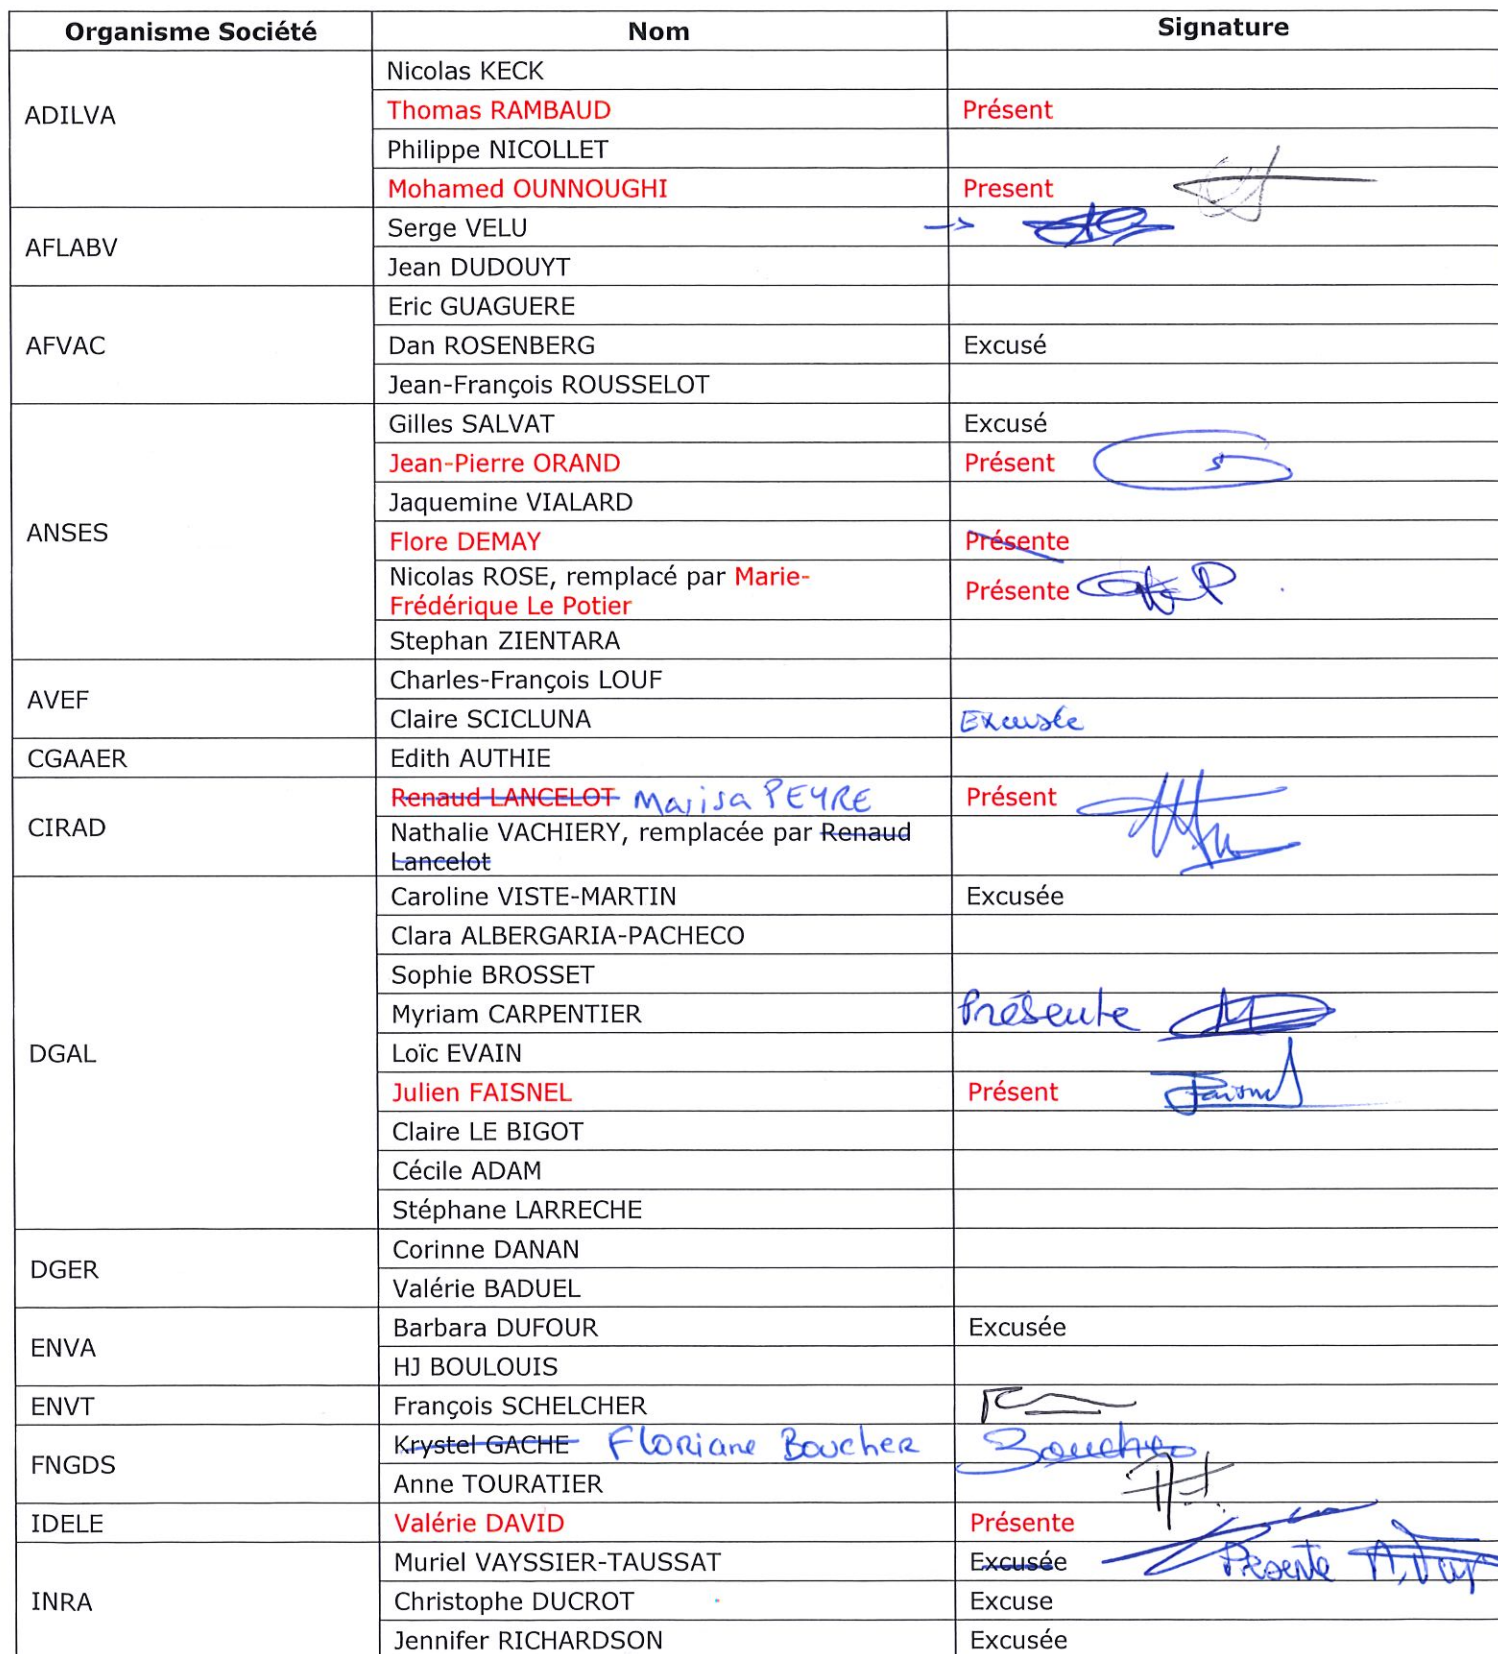 Organisme Société Nom Signature
ADILVA
Nicolas KECK
Thomas RAMBAUD Présent
Philippe NICOLLET
Mohamed OUNNOUGHI Present
AFLABV
Serge VELU →
Jean DUDOUYT
AFVAC
Eric GUAGUERE
Dan ROSENBERG Excusé
Jean-François ROUSSELOT
ANSES
Gilles SALVAT Excusé
Jean-Pierre ORAND Présent
Jaquemine VIALARD
Flore DEMAY Présente
Nicolas ROSE, remplacé par Marie-
Frédérique Le Potier Présente
Stephan ZIENTARA
AVEF
Charles-François LOUF
Claire SCICLUNA Excusée
CGAAER Edith AUTHIE
CIRAD
Renaud LANCELOT Marisa PEYRE Présent
Nathalie VACHIERY, remplacée par Renaud
Lancelot
DGAL
Caroline VISTE-MARTIN Excusée
Clara ALBERGARIA-PACHECO
Sophie BROSSET
Myriam CARPENTIER Présente
Loïc EVAIN
Julien FAISNEL Présent
Claire LE BIGOT
Cécile ADAM
Stéphane LARRECHE
DGER
Corinne DANAN
Valérie BADUEL
ENVA
Barbara DUFOUR Excusée
HJ BOULOUIS
ENVT François SCHELCHER
FNGDS
Krystel GACHE Floriane Boucher Boucher
Anne TOURATIER
IDELE Valérie DAVID Présente
INRA
Muriel VAYSSIER-TAUSSAT Excusée Présente
Christophe DUCROT Excuse
Jennifer RICHARDSON Excusée